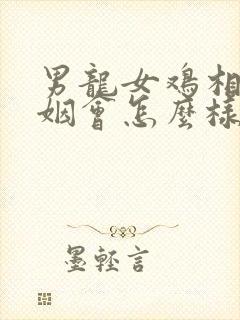 男龍女鸡相
姻會怎麼樣
墨輕言